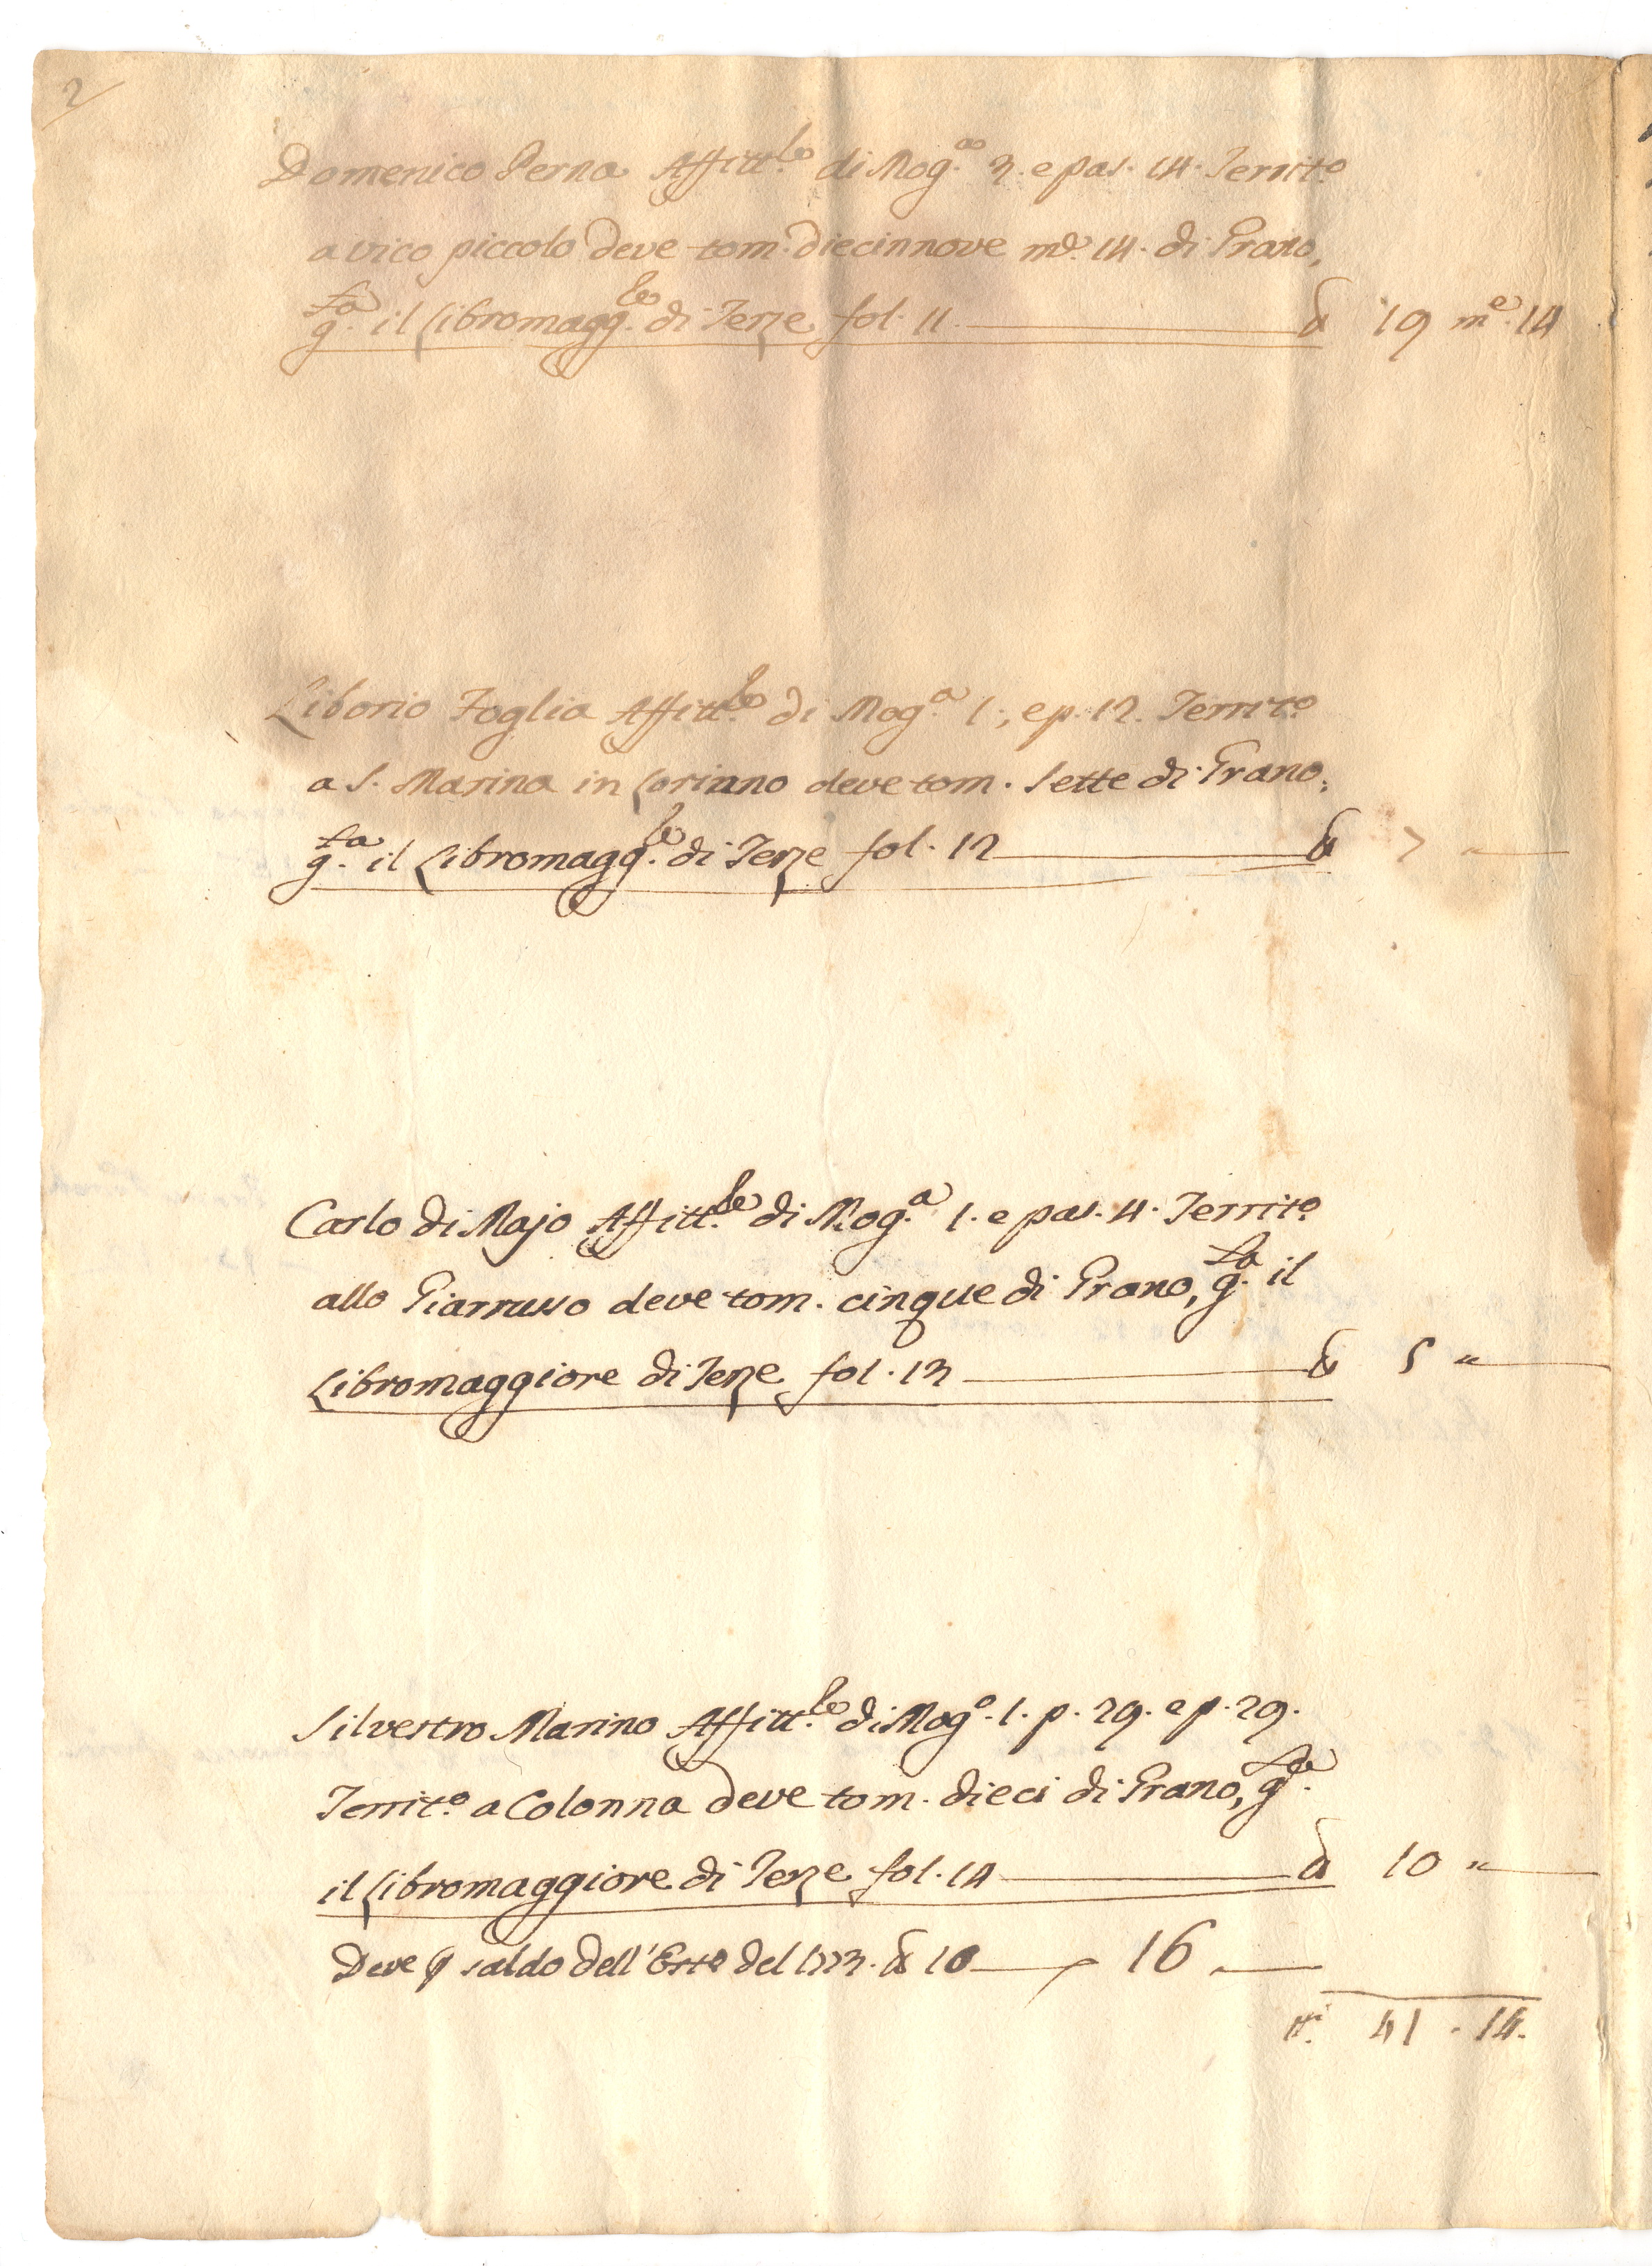 2
Domenico Perna Affitt.le di Mog.a 3. e pas. 14. Territ.o
a vico piccolo deve tom. diecinnove me. 14. di Grano,
g.ta il Libromagg.le di Terze fol. 11. 19 m.e 14
Liborio Foglia Affitt.le di Mog.a 1., e p. 12. Territ.o
a S. Marina in Corinno deve tom. sette di Grano,
g.ta il Libromagg.le di Terze fol. 12 7 "
Carlo di Majo Affitt.le di Mog.a 1. e pas. 4. Territ.o
allo Piarrusso deve tom. cinque di Grano, g.ta il
Libromaggiore di Terze fol. 13 5 "
Silvestro Marino Affitt.le di Mog.o 1. p. 29. e p. 29.
Territ.o a Colonna deve tom. dieci di Grano, g.ta
il Libromaggiore di Terze fol. 14 10 "
Deve saldo dell'Est.o del 1773. 16
41 . 14.